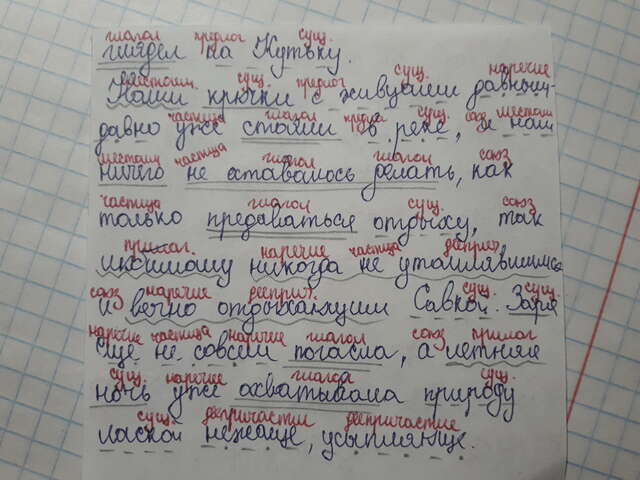 глагол предлог сущ.
глядел на Кутьку.
местоим. сущ. предлог сущ. наречие
Наши крючки с живцами давным-
частица глагол предлог сущ. союз местоим
давно уже стояли в реке, и нам
местоим частица глагол глагол союз
ничего не оставалось делать, как
частица глагол сущ. союз
только предаваться отдыху, так
прилаг. наречие частица дееприч.
любимому никогда не утомлявшимся
союз наречие дееприч. сущ. сущ.
и вечно отдыхающим Савкой. Заря
наречие частица наречие глагол союз прилаг
еще не совсем погасла, а летняя
сущ. наречие глагол сущ.
ночь уже охватывала природу
сущ. деепричастие деепричастие
лаской нежаще, усыпляюще.